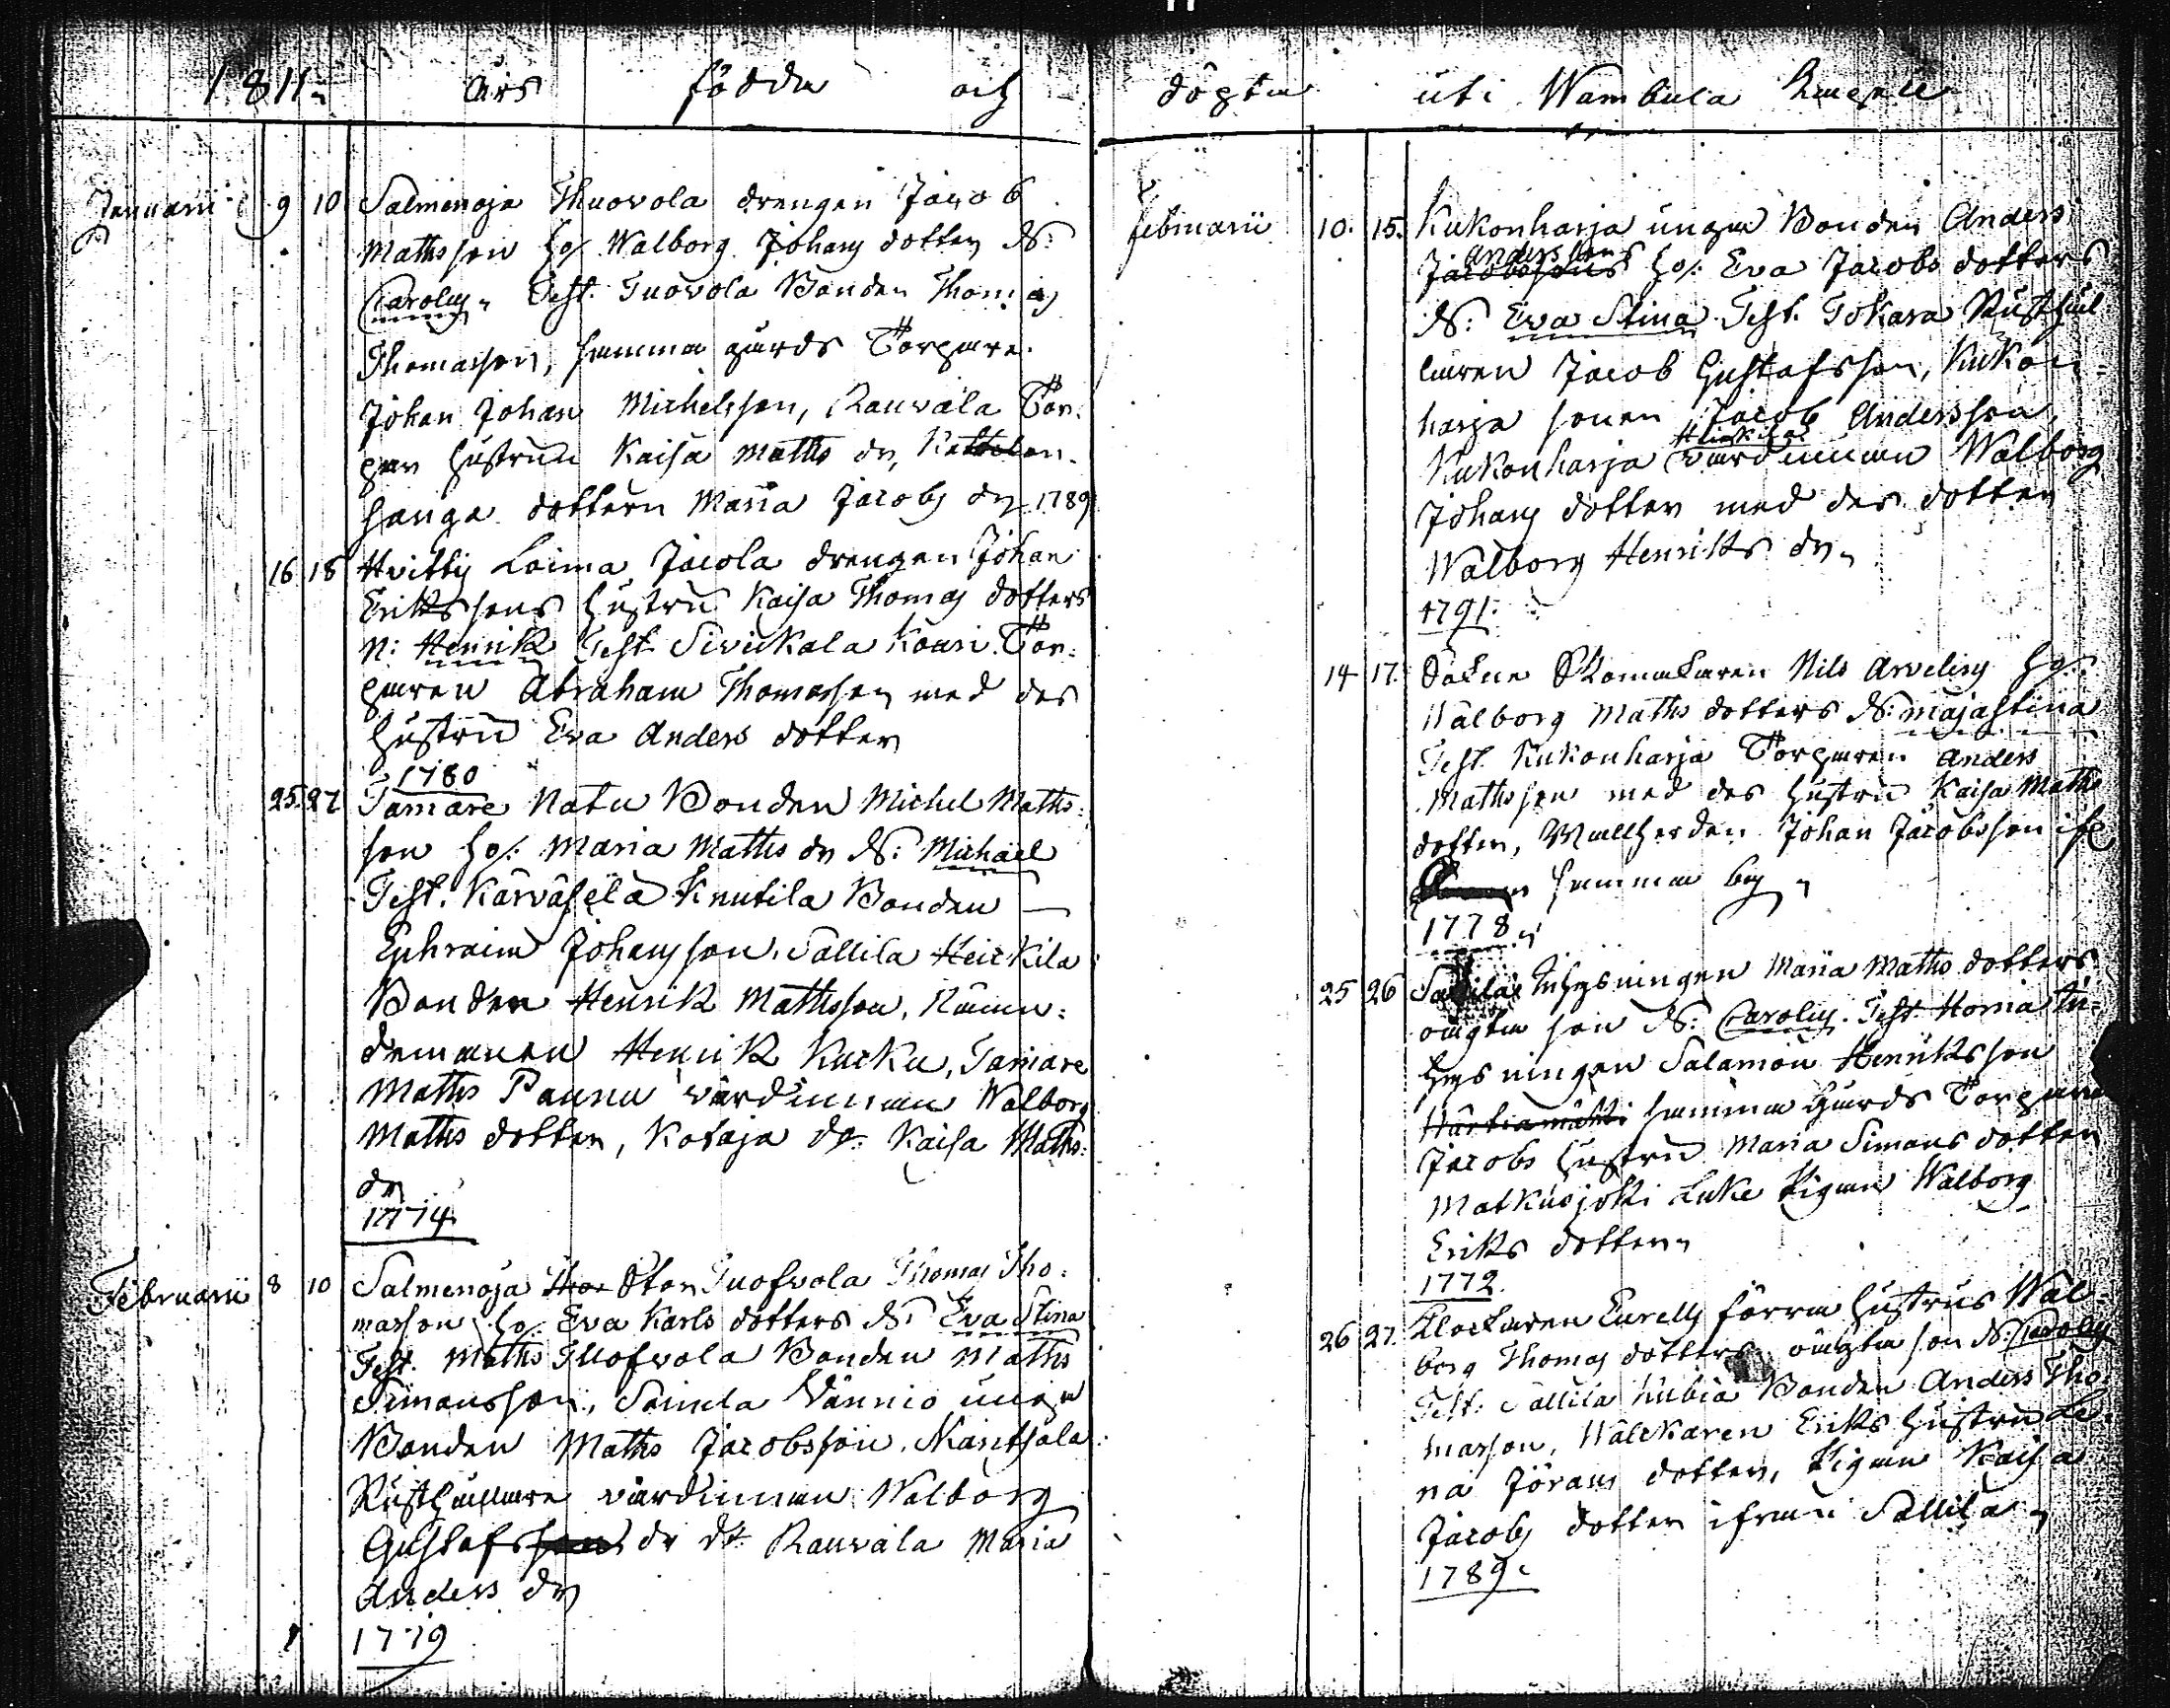 1811 års födda och
Januarii 9 10 Salmenoja Thuovola drengen Jacob
Mathsson ho/: Walborg Johans dotters B:
Carolus. Test. Tuovola Bonden Thomas
Thomasson, samma gårds Torpare
Johan Johan Michelsson, Rauvala Tor-
par hustrun Kaisa Maths dr,
hanga dottern Maria Jacobs dr 1789
16 18 Hvittis Loima Jacola drengen Johan
Erikssons hustru Kaisa Thomas dotters
N: Henrik Test. Sivikala Kouri Tor-
paren Abraham Thomasson med des
hustru Eva Anders dotter
1780
25. 27 Tamare Natu Bonden Michel Maths-
son ho/: Maria Maths dr B: Michaël
Test. Karvasela Knutila Bonden
Ephraim Johansson, Sallila Heickila
Bonden Henrik Mathsson, Nämn-
demannen Henrik Kucku, Tamare
Maths Pannu värdinnan Walborg
Maths dotter, Kotaja do: Kaisa Maths-
dr
1774
Februarii 8 10 Salmenoja Stor Tuofvola Thomas Tho-
masson ho/: Eva Karls dotters B: Eva Stina
Test. Maths Illofvola Bonden Maths
Simonsson, Vännio unga
Bonden Maths Jacobsson,
Rusthållare värdinnan Walborg
Gustafs dr Rauvala Maria
Anders dr
1779
döpta uti Wambula Capell
februarii 10. 15. Kukonharja unga Bonden Anders
Andersson
Jacobssons ho/: Eva Jacobs dotters
B: Eva Stina Test. Tokara Rusthål-
laren Jacob Gustafsson, Kukon-
harja sonen Jacob Andersson,
Heickila
Kukonharja värdinnan Walborg
Johans dotter med des dotter
Walborg Henriks dr
1791.
14 17. Sokne Skomakaren Nils Arvelins ho/:
Walborg Maths dotters B: Majastina
Test. Kukonharja Torparen Anders
Mathsson med des hustru Kaisa Maths
dotter, Wallherden Johan Jacobsson if.
samma by
1778.
25 26 Inhysningen Maria Maths dotters
oägta son B: Carolus. Test. Horna In-
hysningen Salamon Henriksson
samma gårds Torpare
Jacobs hustru Maria Simons dotter
Matkusjoki Luke Pigan Walborg
Eriks dotter
1772.
26 27. Klockaren Eurells förra hustrus Wal-
borg Thomas dotters oägta son B: Carolus
Test. Sallila Bonden Anders Tho-
masson, Wälckaren Eriks hustru Le-
na Jörans dotter, Pigan Kaisa
Jacobs dotter ifrån Sallila
1789.